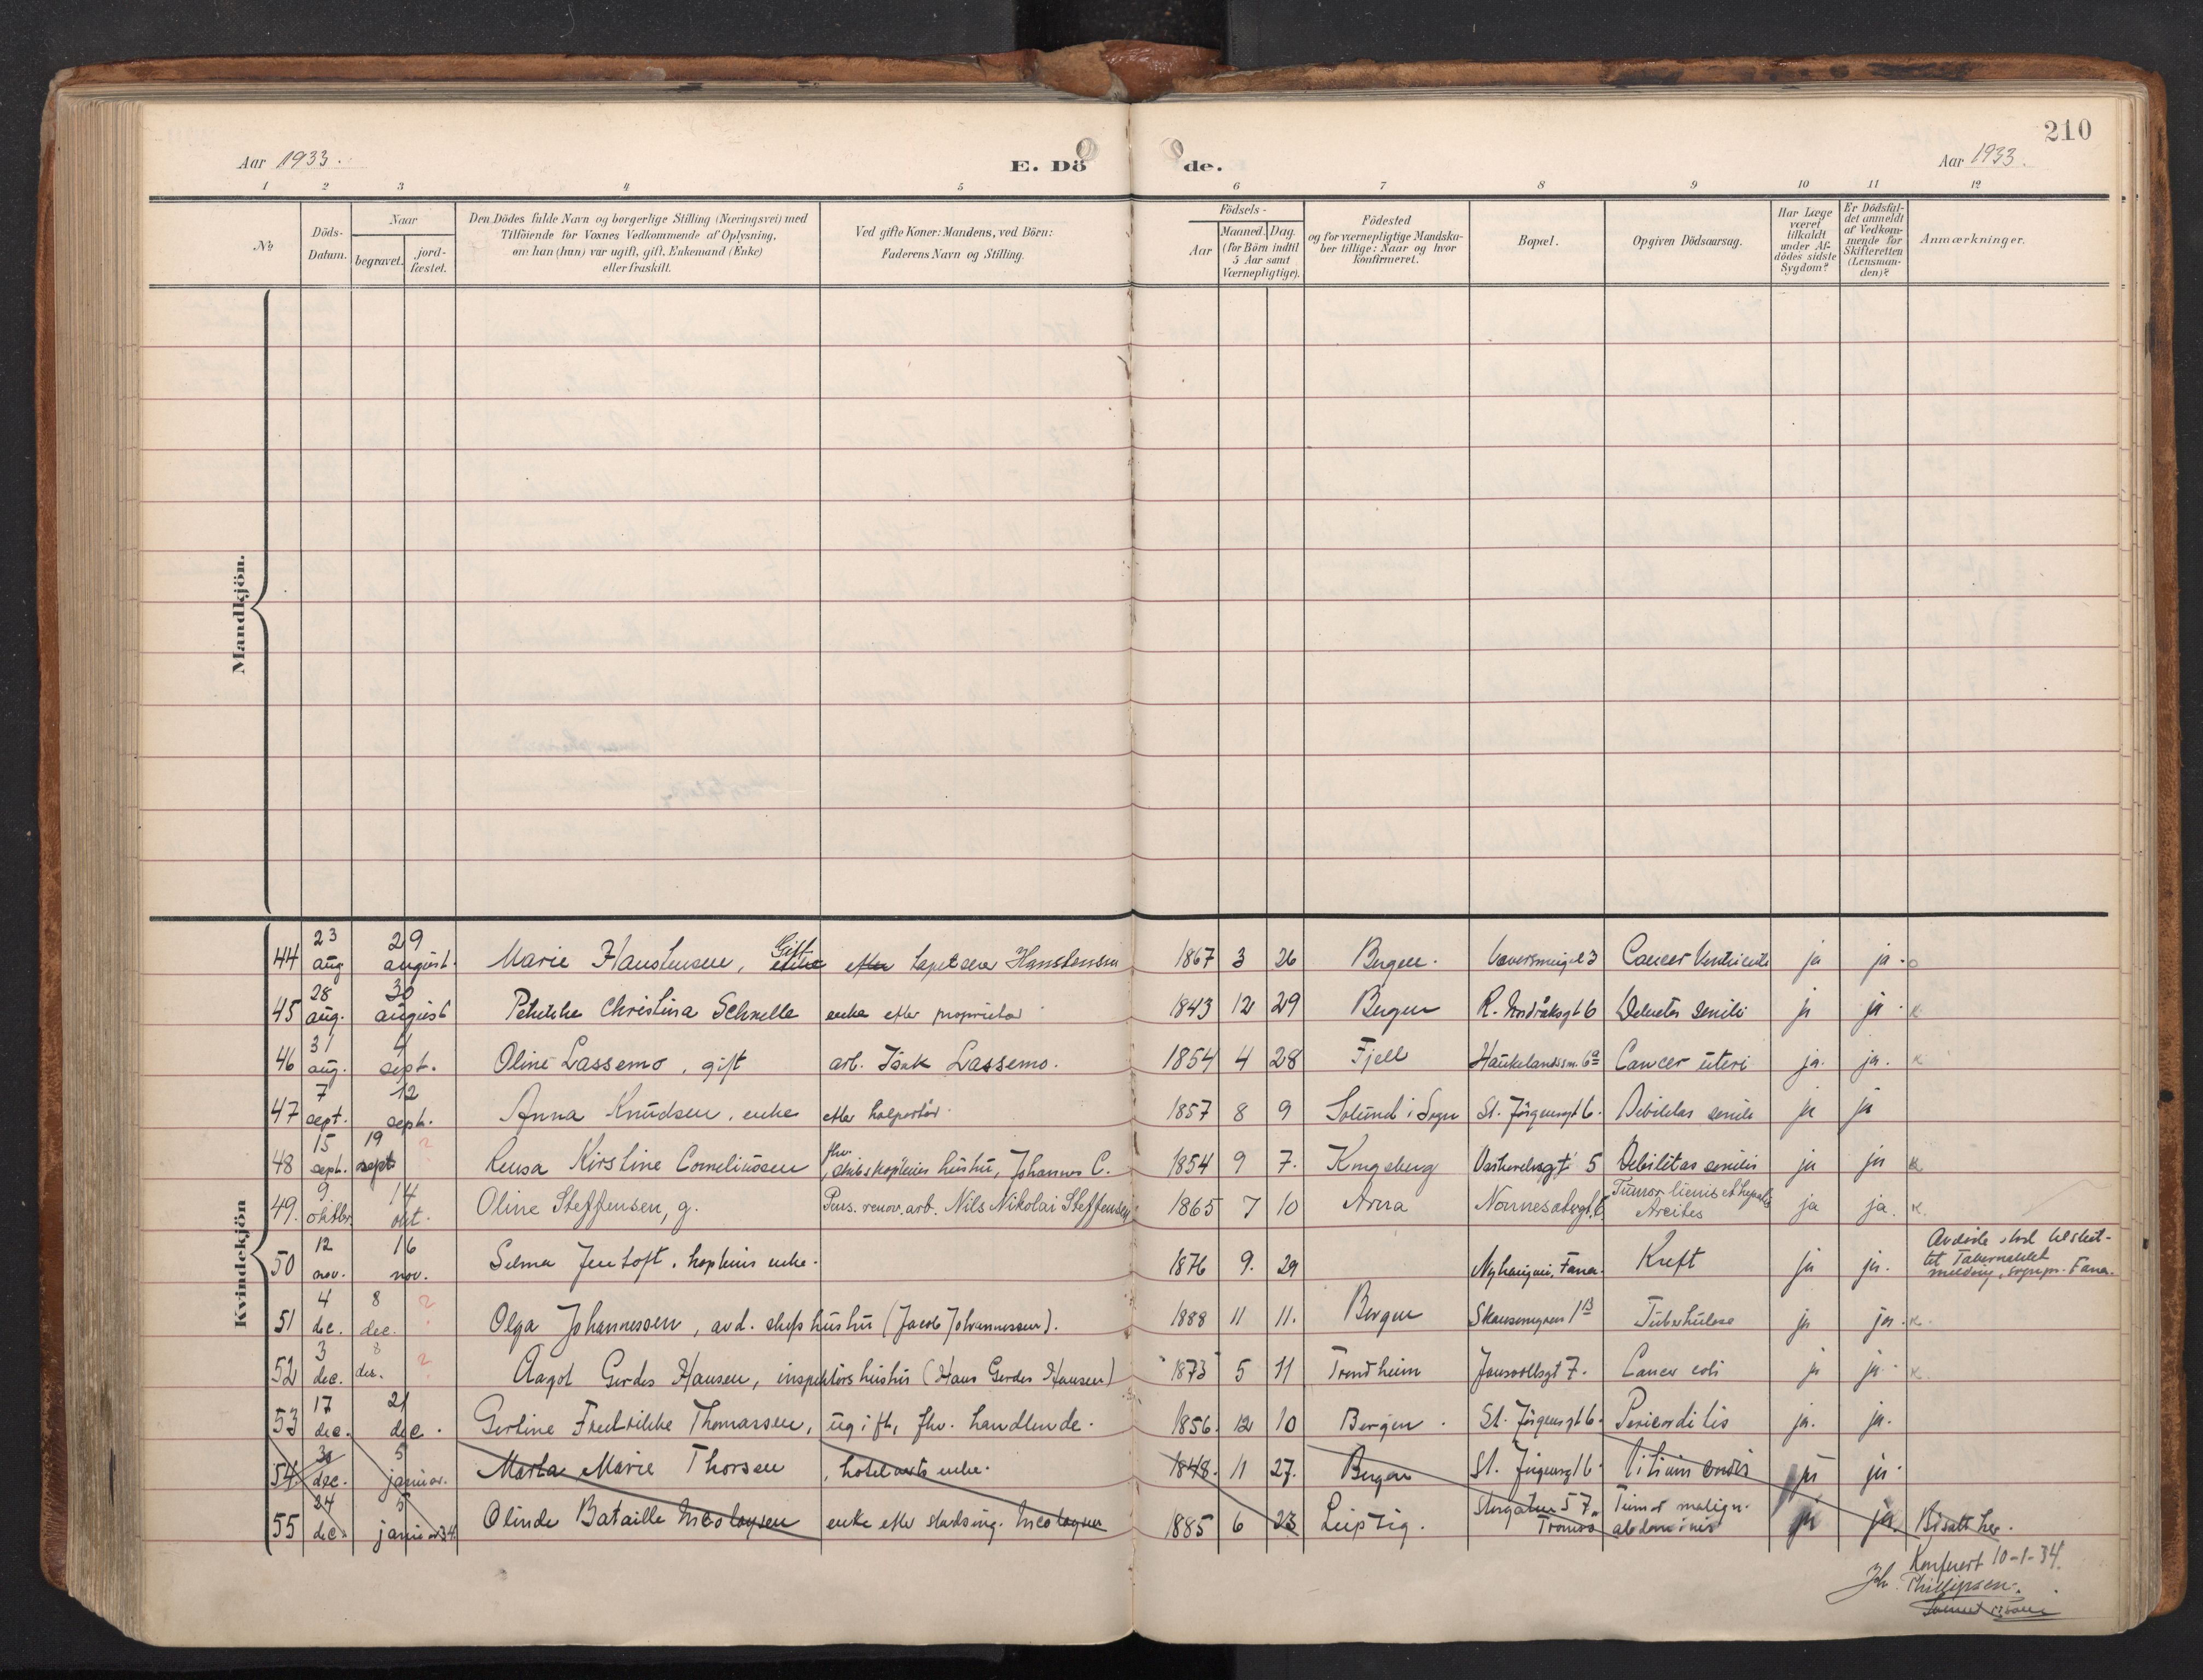 210
Aar 1933. E. Dö de. Aar 1933.
1 2 3 4 5 6 7 8 9 10 11 12
No.
Döds-
Datum.
Naar
begravet.
jord-
fæstet.
Den Dödes fulde Navn og borgerlige Stilling (Næringsvei) med
Tilföiende for Voxnes Vedkommende af Oplysning,
om han (hun) var ugift, gift, Enkemand (Enke)
eller fraskilt.
Ved gifte Koner: Mandens, ved Börn:
Faderens Navn og Stilling.
Födsels-
Aar
Maaned. Dag.
(for Börn indtil
5 Aar samt
Værnepligtige).
Födested
og for værnepligtige Mandska-
ber tillige: Naar og hvor
konfirmeret.
Bopæl.
Opgiven Dödsaarsag.
Har Læge
været
tilkaldt
under Af-
dödes sidste
Sygdom?
Er Dödsfal-
det anmeldt
af Vedkom-
mende for
Skifteretten
(Lensman-
den)?
Anmærkninger.
Mandkjön.
Kvindekjön
44 23 aug 29 august. Marie Hanstensen, Gift enke efter Hanstensen 1867 3 26 Bergen. Cancer ja ja. o
45 28 aug. 30 august Christina Schnelle enke efter proprietær 1843 12 29 Bergen R. Nordråksgt 6 senilis ja ja. k
46 31 aug. 4 sept. Oline Lassemo, gift arb. Isak Lassemo. 1854 4 28 Fjell Haukelandsm. 6a Cancer uteri ja. ja. k
47 7 sept. 12 sept. Anna Knudsen, enke efter kolportør. 1857 8 9 Solund i Sogn St. Jörgensgt 6. Debilitas senilis ja ja
48 15 sept. 19 sept ? Kirstine Corneliussen fhv. skibskapteins hustru, Johannes C. 1854 9 7. Kongsberg 5 Debilitas senilis ja ja k
49. 9 oktbr 14 okt. Oline Steffensen, g. Pens. renov. arb. Nils Nikolai Steffensen 1865 7 10 Arna Tumor lienis et hepatis
Ascites ja ja. k.
50 12 nov. 16 nov. Selma Jentoft, kapteins enke. 1876 9. 29 Fana. Kreft ja ja. Avdöde stod tilslut-
tet Tabernaklet
melding, sognepr. Fana.
51 4 dec. 8 dec. ? Olga Johannessen, avd. chefs hustru (Jacob Johannessen). 1888 11 11. Bergen Skansemyren 1B Tuberkulose ja ja. k.
52 3 dec. 8 dec. ? Aagot Gerdes Hansen, inspektörs hustru (Hans Gerdes Hansen) 1873 5 11 Trondheim Jonsvollsgt 7. Cancer coli ja ja. k.
53 17 dec. 21 dec. Gertine Fredrikke Thomassen, ugift, fhv. handlende. 1856. 12 10 Bergen. St. Jörgensgt 6. Pericarditis ja. ja.
54. 30 dec. 5 januar. Marta Marie Thorsen, hotelverts enke. 1848. 11 27. Bergen St. Jörgensgt 6. Vitium cordis ja ja.
55 24 dec. 5 januar 34. Olinde Bataille Nicolaysen enke efter stadsing. Nicolaysen 1885 6 23 Leipzig. Storgaten 57,
Tromsö Tumor malign.
abdominis ja ja. Bisatt her.
Konferert 10-1-34.
Joh. Phillipsen.